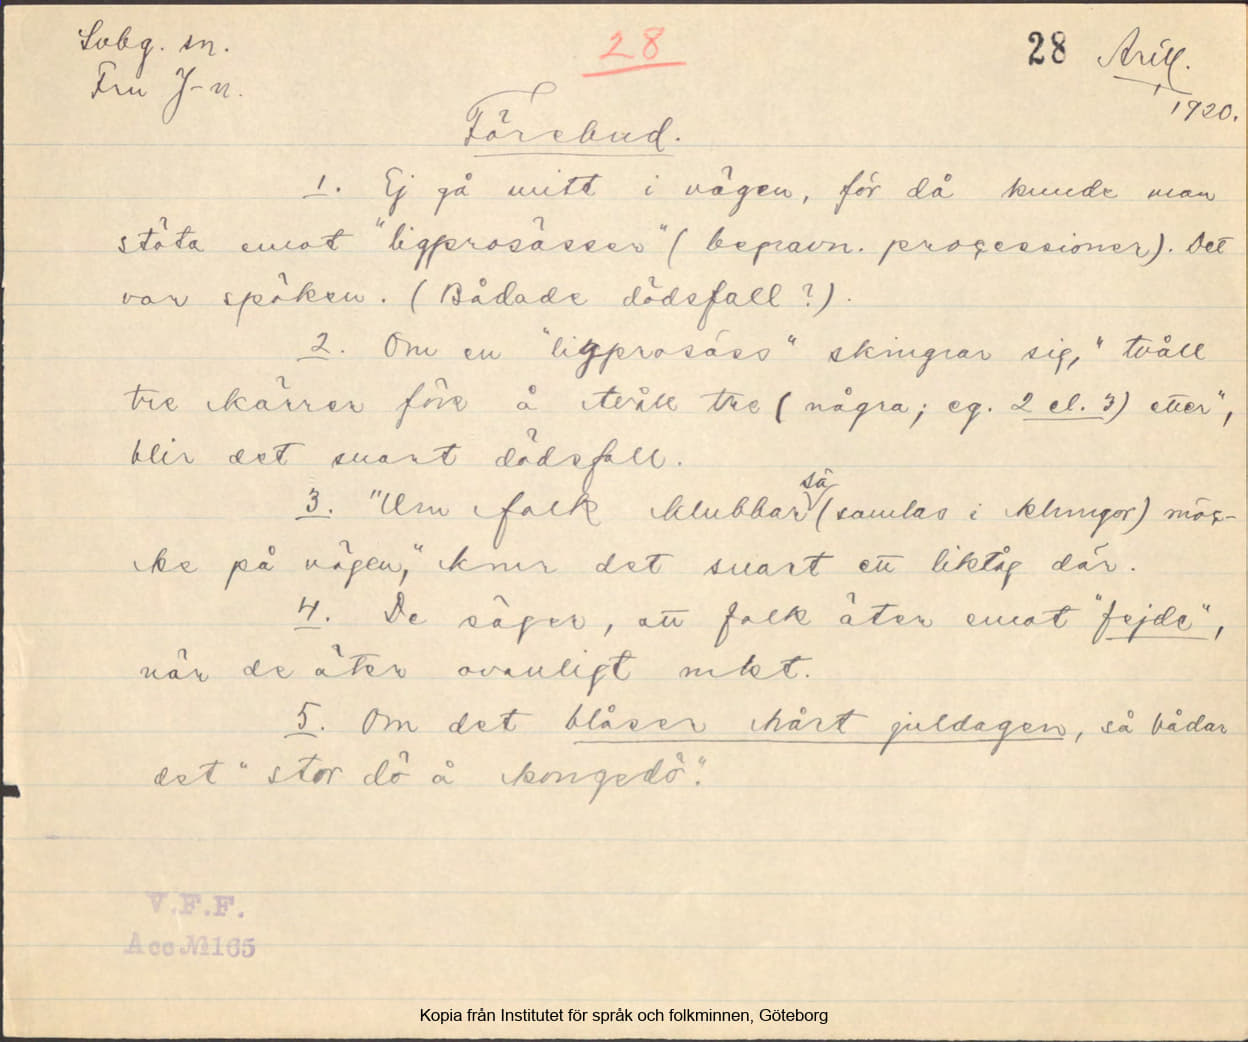 Svbg. sn.
Fru J-n.
28
28 Arill.
1920.
Förebud.
1. Ej gå mitt i vägen, för då kunde man
stöta emot "ligprosässer" (begravn. processioner). Det
var spöken. (Bådade dödsfall?).
2. Om en "ligprosäss" skingrar sig, "tvåll
tre kärrer före å tvåll tre (några; eg. 2 el. 3) etter",
blir det snart dödsfall.
3. "Um folk klubbar sä (samlas i klungor) möc-
ke på vägen," kmr det snart ett liktåg där.
4. De säger, att folk äter emot "fejde",
när de äter ovanligt mkt.
5. Om det blåser hårt juldagen, så bådar
det "stor dö å kongedö".
V.F.F.
Acc.№165
Kopia från Institutet för språk och folkminnen, Göteborg